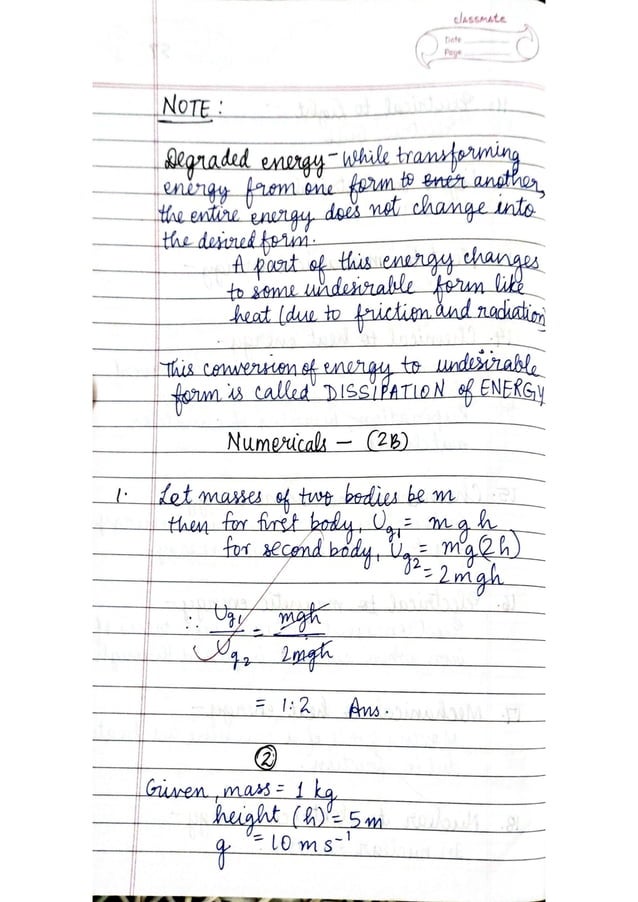 classmate
Date
Page
NOTE:
Degraded energy - While transforming
energy from one form to ener another,
the entire energy does not change into
the desired form.
A part of this energy changes
to some undesirable form like
heat (due to friction and radiation)
This conversion of energy to undesirable
form is called DISSIPATION of ENERGY
Numericals - (2B)
1. Let masses of two bodies be m
then for first body, Ug1 = mgh
for second body, Ug2 = mg(2h)
= 2mgh
∴ Ug1/Ug2 = mgh/2mgh
= 1:2 Ans.
2
Given, mass = 1 kg
height (h) = 5m
g = 10 m s⁻¹